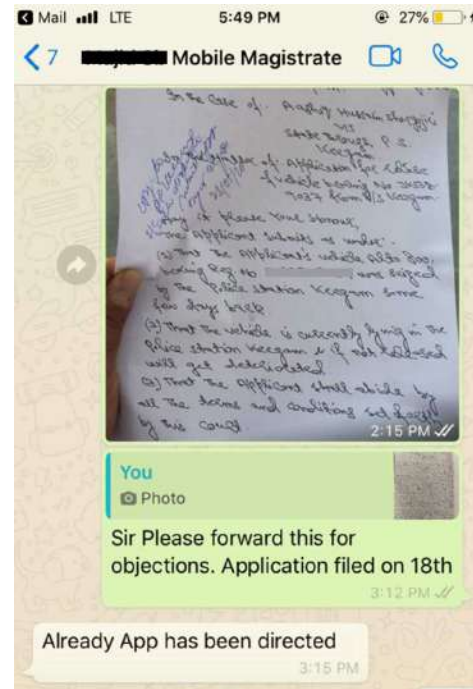 Mail LTE 5:49 PM 27%
7 Mobile Magistrate
In the Case of:
Hussain
V/S
State through P.S.
Keegam
Application for release
of vehicle bearing No
from P/S Keegam
May it please Your Honour,
The Applicant submits as under.
(1) That the Applicant's vehicle Alto 800,
bearing Reg No were seized
by the Police station Keegam some
few days back
(2) That the vehicle is currently lying in the
Police station Keegam & if not released
will get deteriorated
(3) That the Applicant shall abide by
all the terms and conditions set
by this court
2:15 PM
You
Photo
Sir Please forward this for
objections. Application filed on 18th
3:12 PM
Already App has been directed
3:15 PM